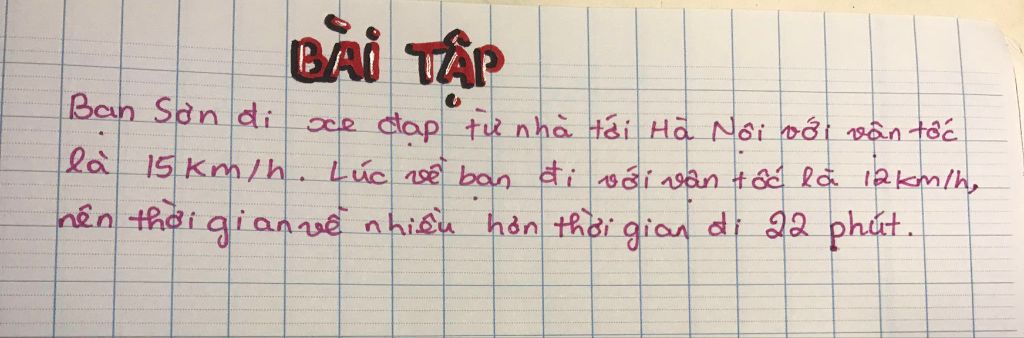 BÀI TẬP
Bạn Sơn đi xe đạp từ nhà tới Hà Nội với vận tốc
là 15 Km/h. Lúc về bạn đi với vận tốc là 12km/h,
nên thời gian về nhiều hơn thời gian đi 22 phút.